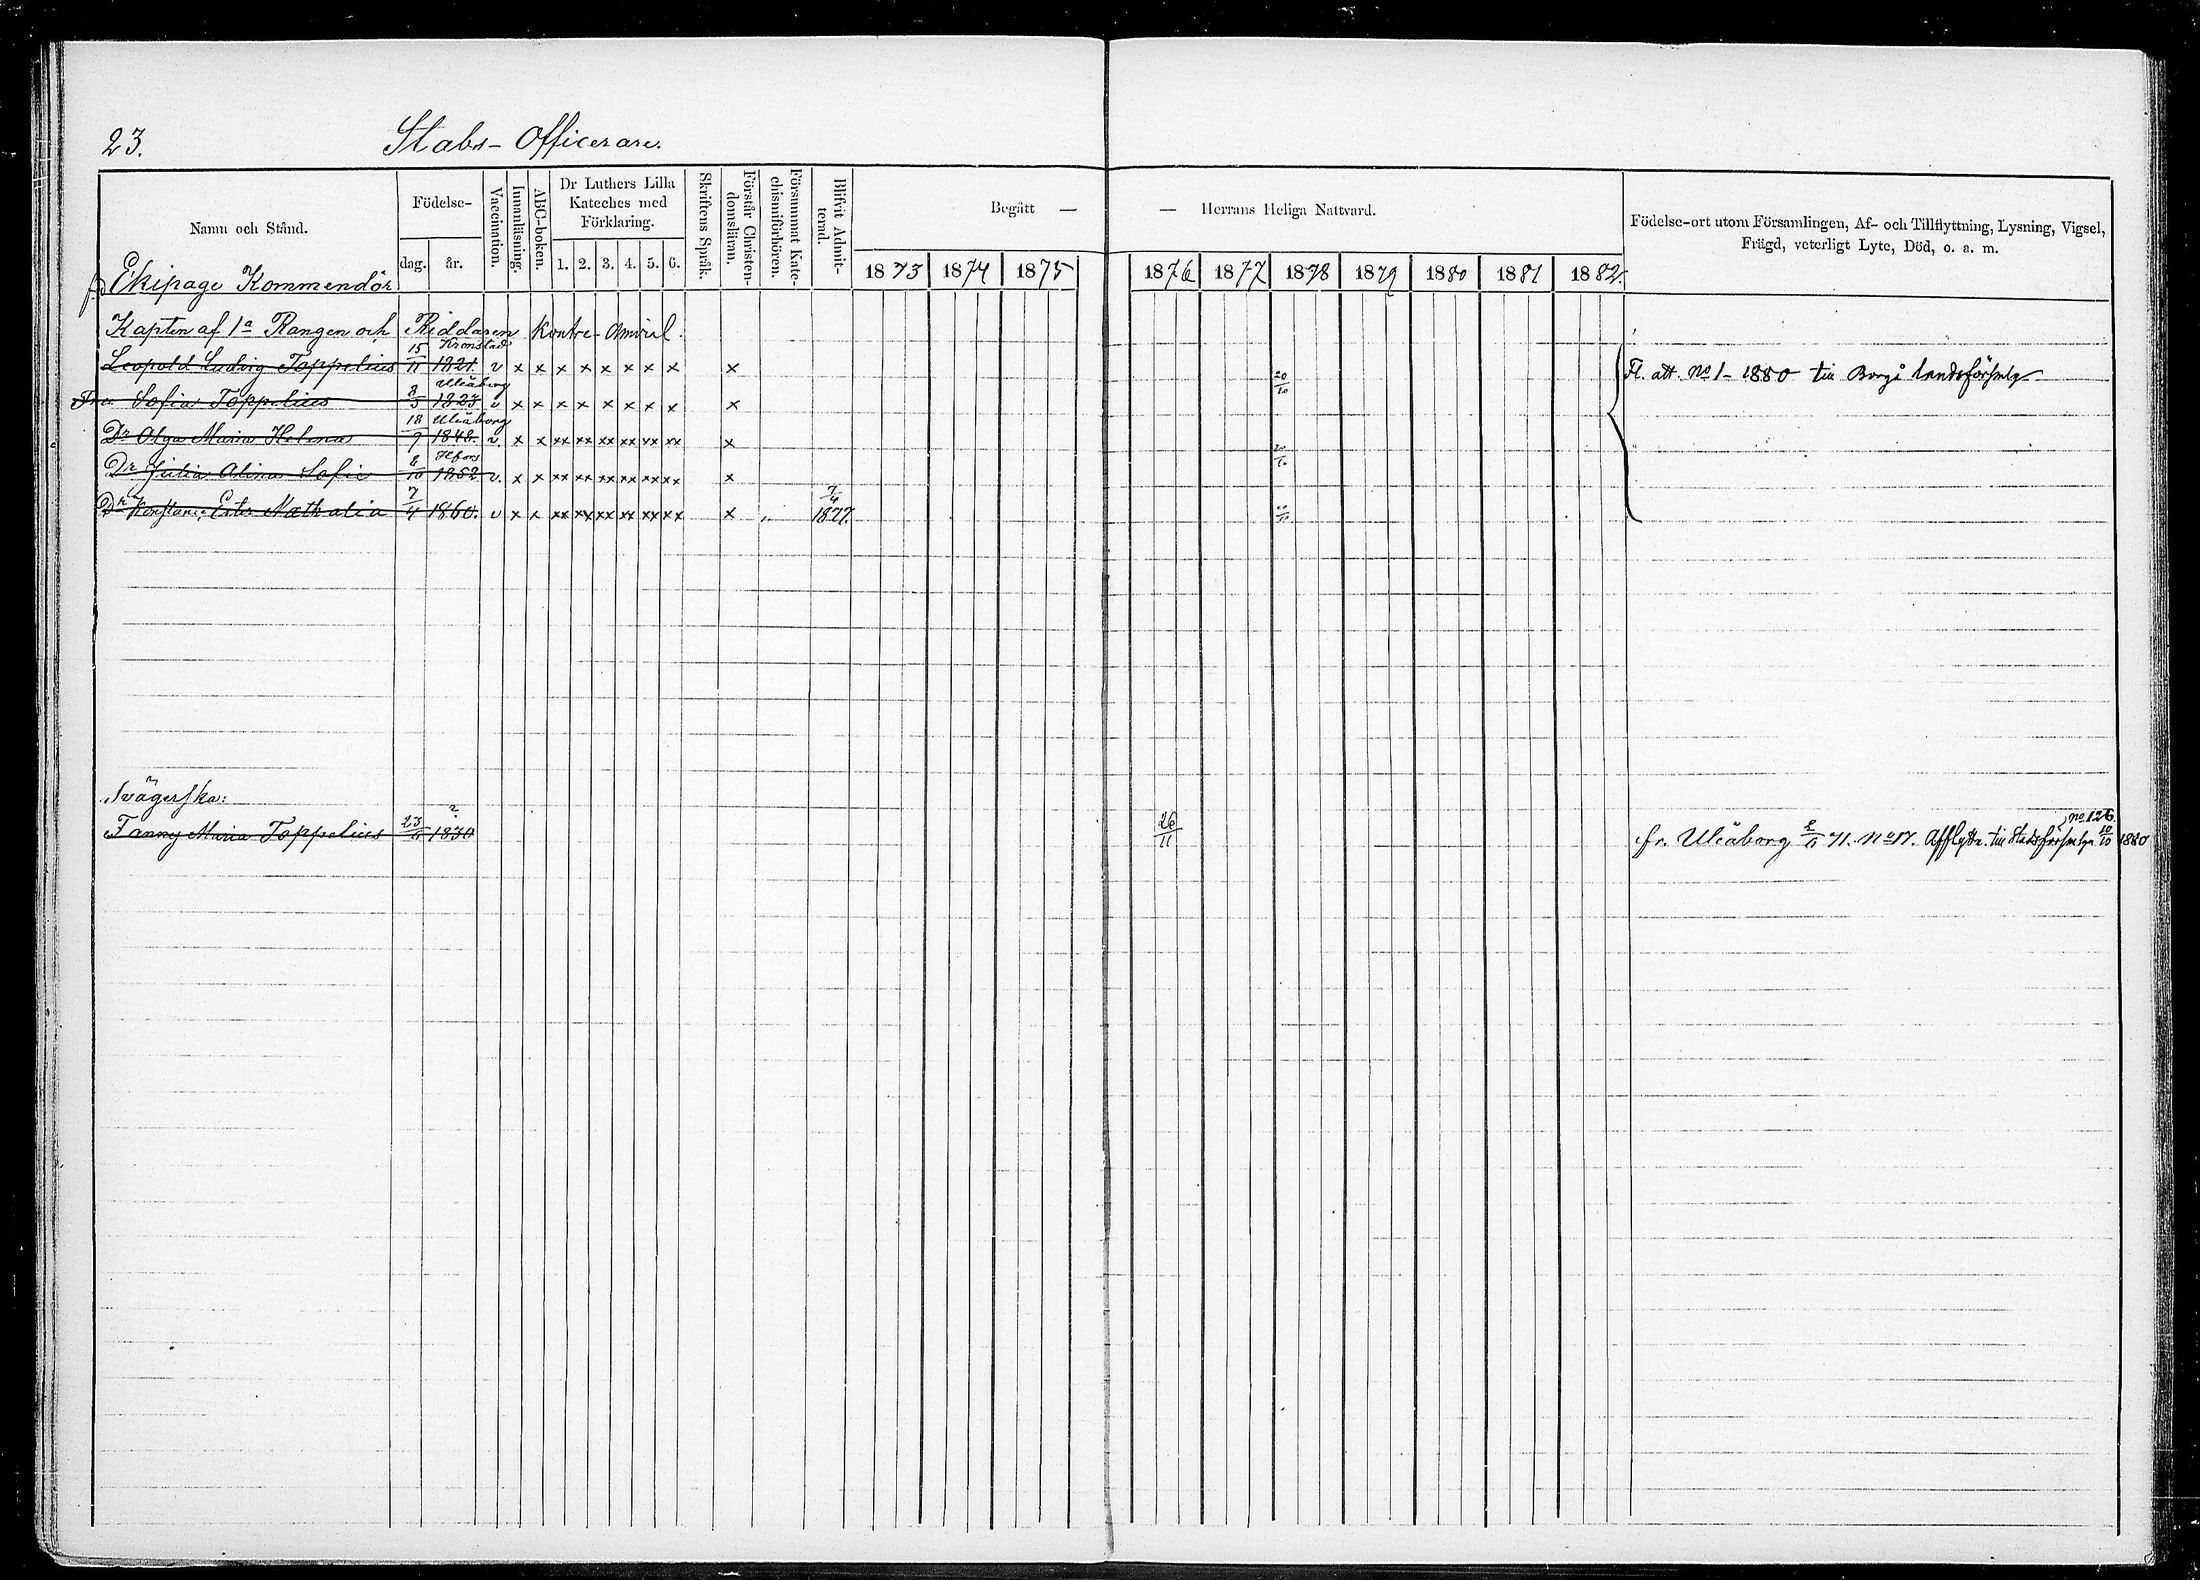 23.
Stabs-Officerare.
Namn och Stånd.
Födelse-
dag. år.
Vaccination.
Innanläsning.
ABC-boken.
Dr Luthers Lilla
Kateches med
Förklaring.
1. 2. 3. 4. 5. 6.
Skriftens Språk.
Förstår Christen-
domsläran.
Försummat Kate-
chismiförhören.
Blifvit Admit-
terad.
Begått —
— Herrans Heliga Nattvard.
1873 1874 1875
1876 1877 1878 1879 1880 1881 1882.
Födelse-ort utom Församlingen, Af- och Tillflyttning, Lysning, Vigsel,
Frägd, veterligt Lyte, Död, o. a. m.
f.d. Ekipage Kommendör
Kapten af 1a Rangen och Riddaren Kontre-Amiral.
Kronstad
Leopold Ludvig Toppelius 15/11 1821. v x x x x x x x x x
Fl. att. No 1 - 1880 till Borgå landsförsmlg
20/10
Uleåborg
Fru Sofia Toppelius 8/5 1823 v x x x x x x x x x
Uleåborg
Dr Olga Maria Helena 18/9 1848. v. x x xx xx xx xx xx xx x
Hfors
Dr Julia Alina Sofie 8/10 1852 v. x x xx xx xx xx xx xx x
20/10
Dr Konstance Ester Nathalia 7/4 1860. v x x xx xx xx xx xx xx x „ 7/4 1877.
20/10
Svägerska:
Fanny Maria Toppelius 23/5 1830 ?
26/11
fr. Uleåborg 2/11 71. No 17. Afflytta. till Stadsförsmlgn 10/10 1880
no 126.